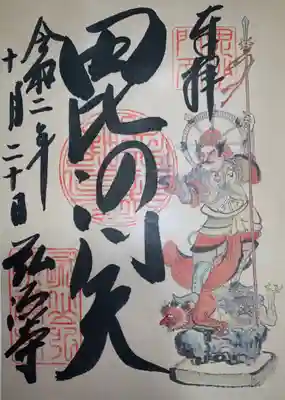 奉拝
毘沙門天
令和二年
十月二十日
弘法寺